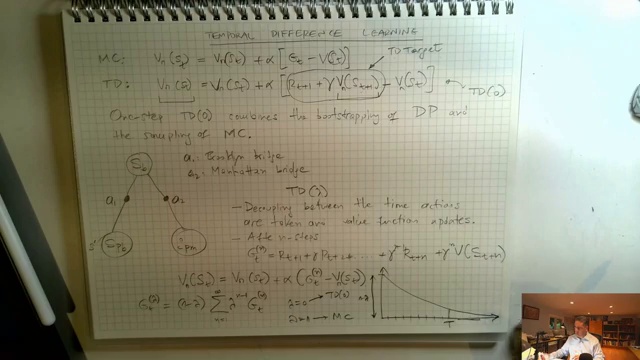 TEMPORAL DIFFERENCE LEARNING
MC: Vπ(St) = Vπ(St) + α [Gt - V(St)]
TD Target
TD: Vπ(St) = Vπ(St) + α [Rt+1 + γ Vπ(St+1) - V(St)] TD(0)
One-step TD(0) combines the bootstrapping of DP and
the sampling of MC.
S6
a1: Brooklyn bridge
a2: Manhattan bridge
a1
a2
TD(λ)
- Decoupling between the time actions
are taken and value function updates.
- After n-steps
Gt(n) = Rt+1 + γ Rt+2 + ... + γ Rt+n + γn V(St+n)
Vπ(St) = Vπ(St) + α (Gt(n) - Vπ(St))
λ=0 → TD(0)
→ MC
T